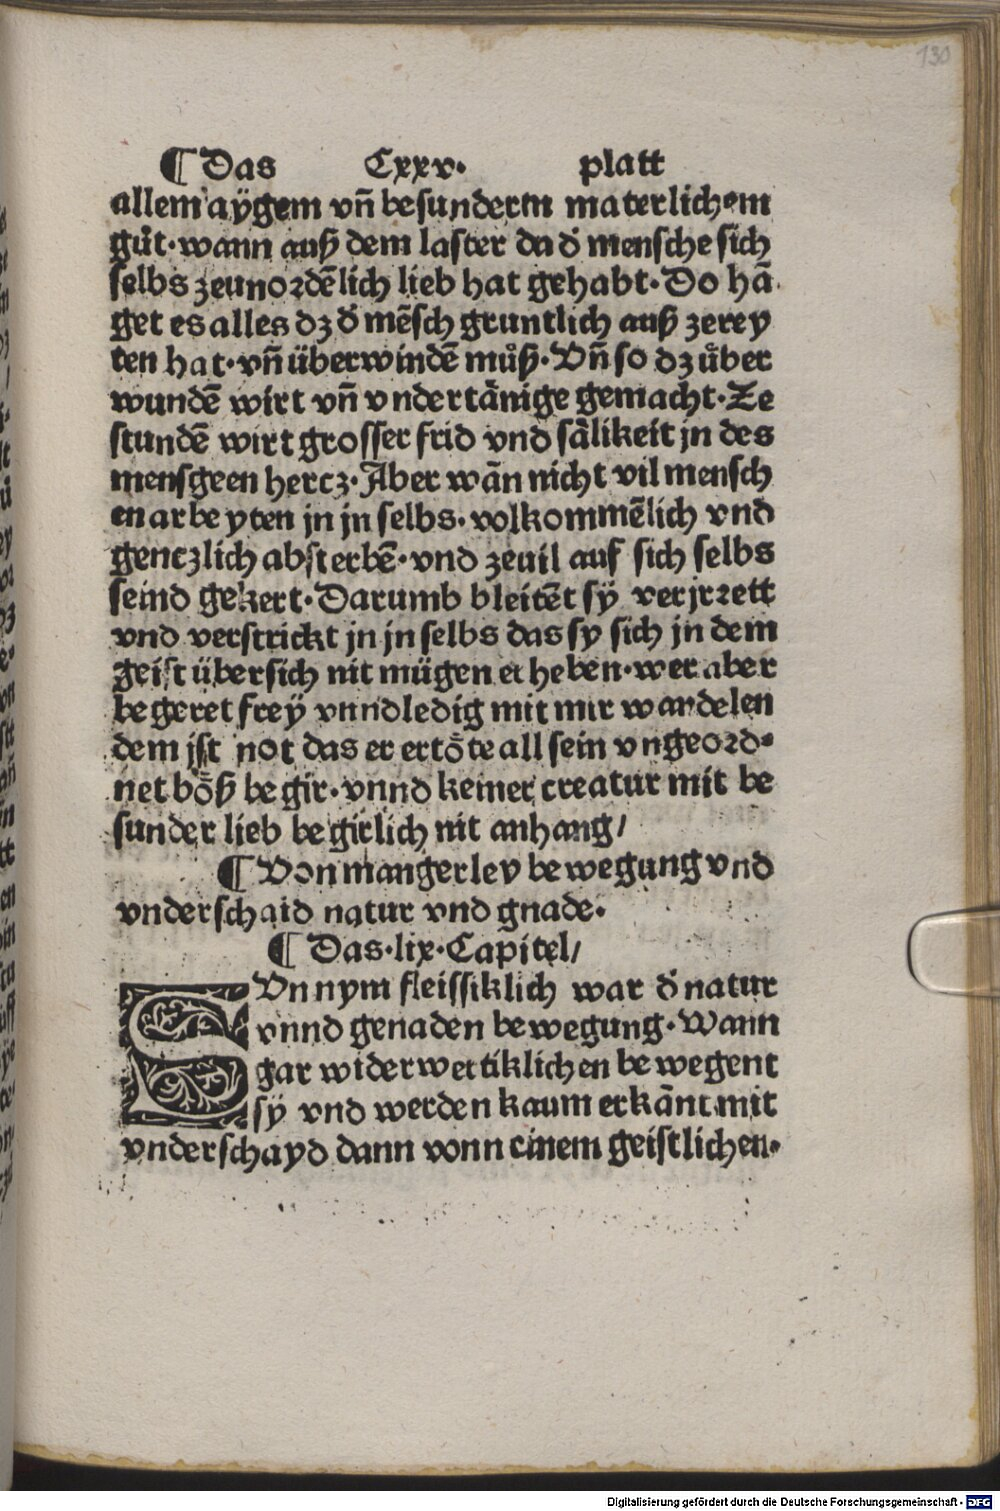 130
¶ Das Cxxv· platt
allem aygem vn̄ besunderm materlichem
gůt·wann auß dem laster da d̄ mensche sich
selbs zeunordēlich lieb hat gehabt·Do hā
get es alles dz d̄ mēsch gruntlich auß zerey
ten hat·vn̄ überwindē můß·Vn̄ so dz ůber
wundē wirt vn̄ vndertānige gemacht·Ze
stundē wirt grosser frid vnd sālikeit jn des
mensgeen hercz·Aber wān nicht vil mensch
en arbeyten jn jn selbs·volkommēlich vnd
genczlich absterbē·vnd zeuil auf sich selbs
seind gekert·Darumb bleitēt sÿ verjrrett
vnd verstrickt jn jn selbs das sy sich jn dem
geist übersich nit mügen er heben·wer aber
begeret freÿ vnnd ledig mit mir wandelen
dem jst not das er ertȫte all sein vngeord⸗
net bȫß begir·vnnd keiner creatur mit be
sunder lieb begirlich nit anhang/
¶ Von mangerley bewegung vnd
vnderschaid natur vnd gnade·
¶ Das·lix·Capitel/
SVn nym fleissiklich war d̄ natur
vnnd genaden bewegung·Wann
gar widerwertiklichen bewegent
sÿ vnd werden kaum erkānt mit
vnderschayd dann vonn einem geistlichen·
Digitalisierung gefördert durch die Deutsche Forschungsgemeinschaft - DFG